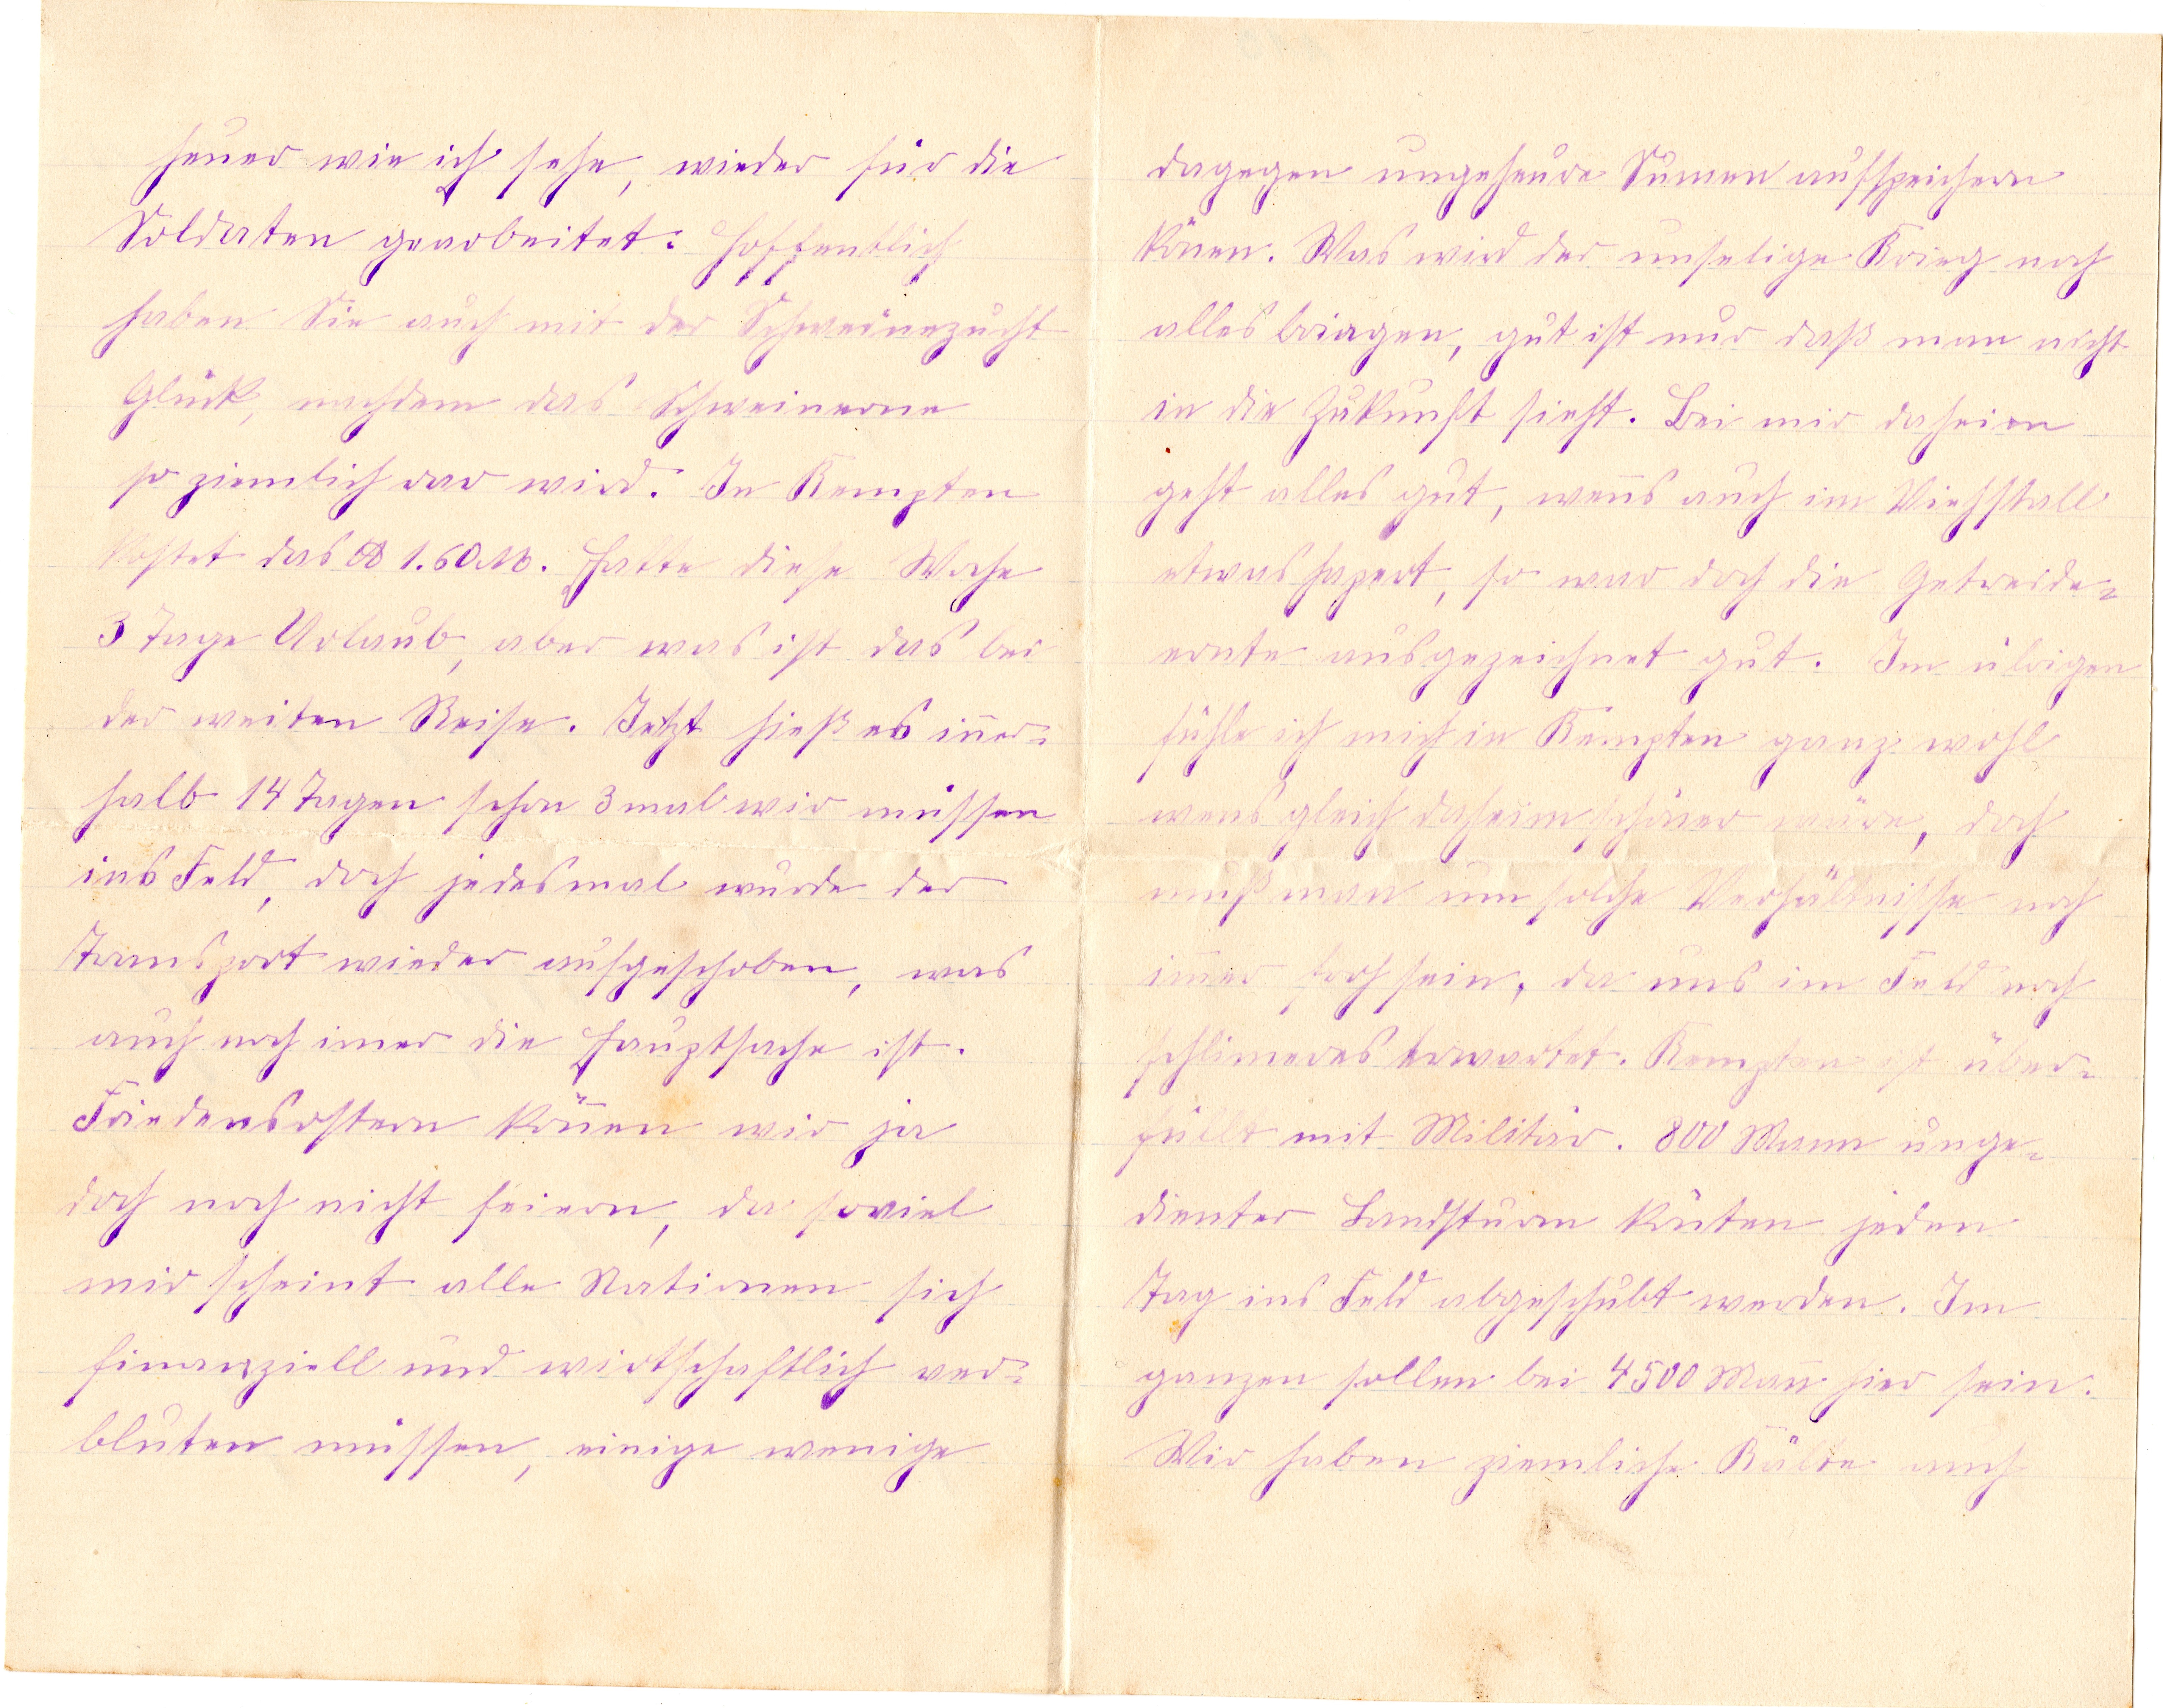 heuer wie ich sehe, wieder für die
Soldaten gearbeitet. Hoffentlich
haben Sie auch mit der Schweinezucht
Glück, nachdem das Schweinerne
so ziemlich rar wird. In Kempten
kostet das ℔ 1.60 M. Hatte diese Woche
3 Tage Urlaub, aber was ist das bei
der weiten Reise. Jetzt hieß es iner-
halb 14 Tagen schon 3 mal wir müssen
ins Feld, doch jedesmal wurde der
Transport wieder aufgeschoben, was
auch noch imer die Hauptsache ist.
Friedensostern könen wir ja
doch noch nicht feiern, da soviel
mir scheint alle Nationen sich
finanziell und wirtschaftlich ver-
bluten müssen, einige wenige
dagegen ungeheure Sumen aufspeichern
könen. Was wird der unselige Krieg noch
alles bringen, gut ist nur daß man nicht
in die Zukunft sieht. Bei mir daheim
geht alles gut, wens auch im Viehstall
etwas hapert, so war doch die Getreide-
ernte ausgezeichnet gut. Im übrigen
fühle ich mich in Kempten ganz wohl
wens gleich daheim schöner wäre, doch
muß man um solche Verhältnisse noch
imer froh sein, da uns im Feld noch
schlimeres erwartet. Kempten ist über-
füllt mit Militär. 800 Mann unge-
dienter Landsturm könten jeden
Tag ins Feld abgeschubt werden. Im
ganzen sollen bei 4500 Man hier sein.
Wir haben ziemliche Kälte auch